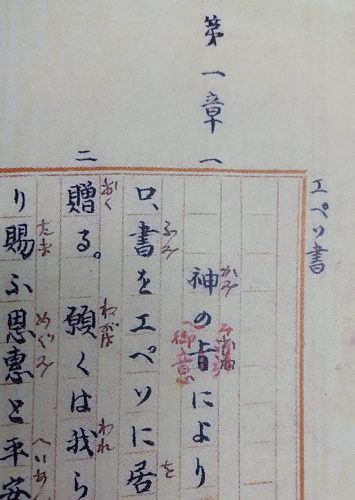 エペソ書
第一章 一
かみ
神の旨により
御意
ふみ を
ロ、書をエペソに居
二
おく ねがは われ
贈る。願くは我ら
たま めぐみ
り賜ふ恩惠と平安